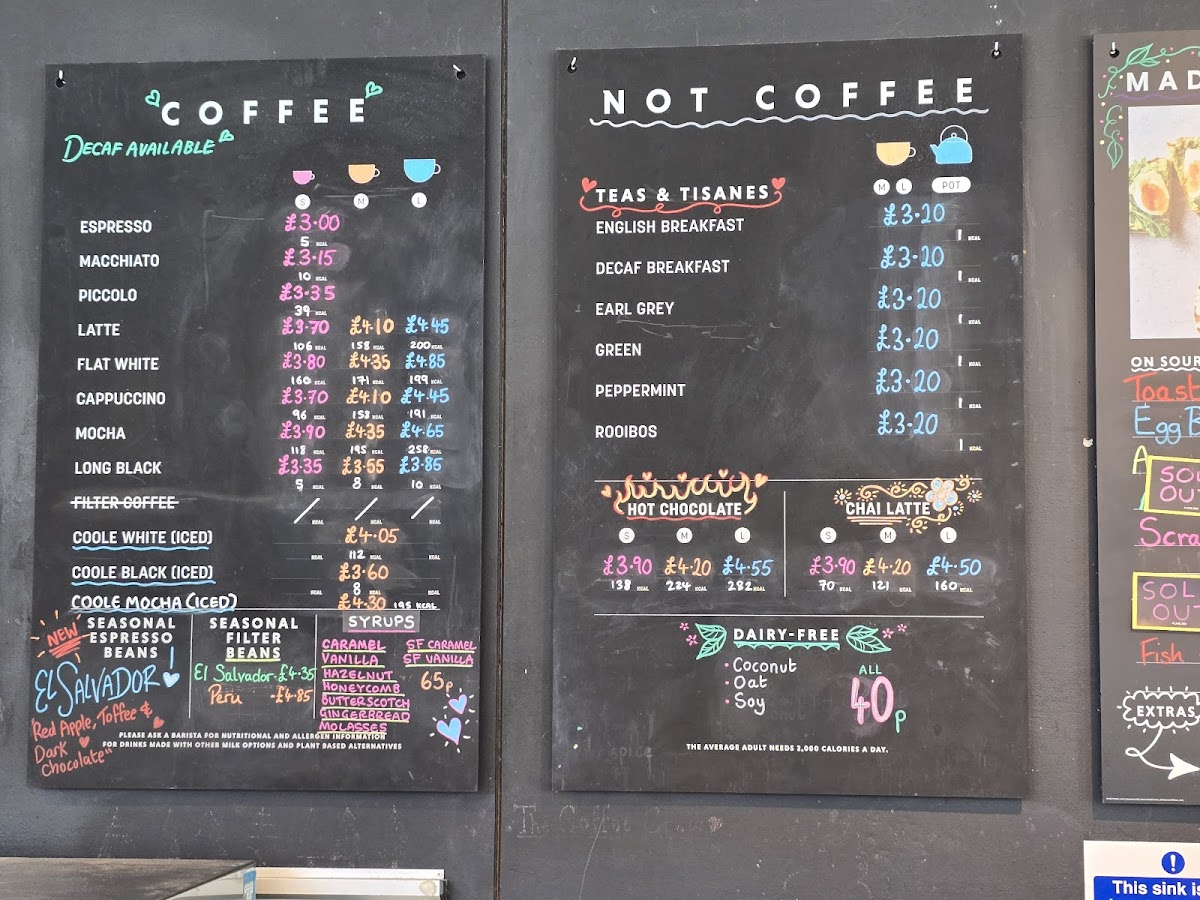 COFFEE
DECAF AVAILABLE
S M L
ESPRESSO £3.00
5 KCAL
MACCHIATO £3.15
10 KCAL
PICCOLO £3.35
39 KCAL
LATTE £3.70 £4.10 £4.45
106 KCAL 158 KCAL 200 KCAL
FLAT WHITE £3.80 £4.35 £4.85
160 KCAL 171 KCAL 199 KCAL
CAPPUCCINO £3.70 £4.10 £4.45
96 KCAL 153 KCAL 191 KCAL
MOCHA £3.90 £4.35 £4.65
118 KCAL 195 KCAL 258 KCAL
LONG BLACK £3.35 £3.55 £3.85
5 KCAL 8 KCAL 10 KCAL
FILTER COFFEE / / /
KCAL KCAL KCAL
COOLE WHITE (ICED) £4.05
KCAL 112 KCAL KCAL
COOLE BLACK (ICED) £3.60
KCAL 8 KCAL KCAL
COOLE MOCHA (ICED) £4.30 195 KCAL
NEW
SEASONAL
ESPRESSO
BEANS
EL SALVADOR!
"Red Apple, Toffee &
Dark
Chocolate"
SEASONAL
FILTER
BEANS
El Salvador - £4.35
Peru - £4.85
SYRUPS
CARAMEL
VANILLA
HAZELNUT
HONEYCOMB
BUTTERSCOTCH
GINGERBREAD
MOLASSES
SF CARAMEL
SF VANILLA
65p
PLEASE ASK A BARISTA FOR NUTRITIONAL AND ALLERGEN INFORMATION
FOR DRINKS MADE WITH OTHER MILK OPTIONS AND PLANT BASED ALTERNATIVES
NOT COFFEE
TEAS & TISANES
M L POT
ENGLISH BREAKFAST £3.20
1 KCAL
DECAF BREAKFAST £3.20
1 KCAL
EARL GREY £3.20
1 KCAL
GREEN £3.20
1 KCAL
PEPPERMINT £3.20
1 KCAL
ROOIBOS £3.20
1 KCAL
HOT CHOCOLATE
S M L
£3.90 £4.20 £4.55
138 KCAL 224 KCAL 282 KCAL
CHAI LATTE
S M L
£3.90 £4.20 £4.50
70 KCAL 121 KCAL 160 KCAL
DAIRY-FREE
• Coconut
• Oat
• Soy
ALL
40p
THE AVERAGE ADULT NEEDS 2,000 CALORIES A DAY.
MAD
ON SOUR
Toast
Egg B
A
SOL
OU
Scra
SOL
OU
Fish
EXTRAS
!
This sink is